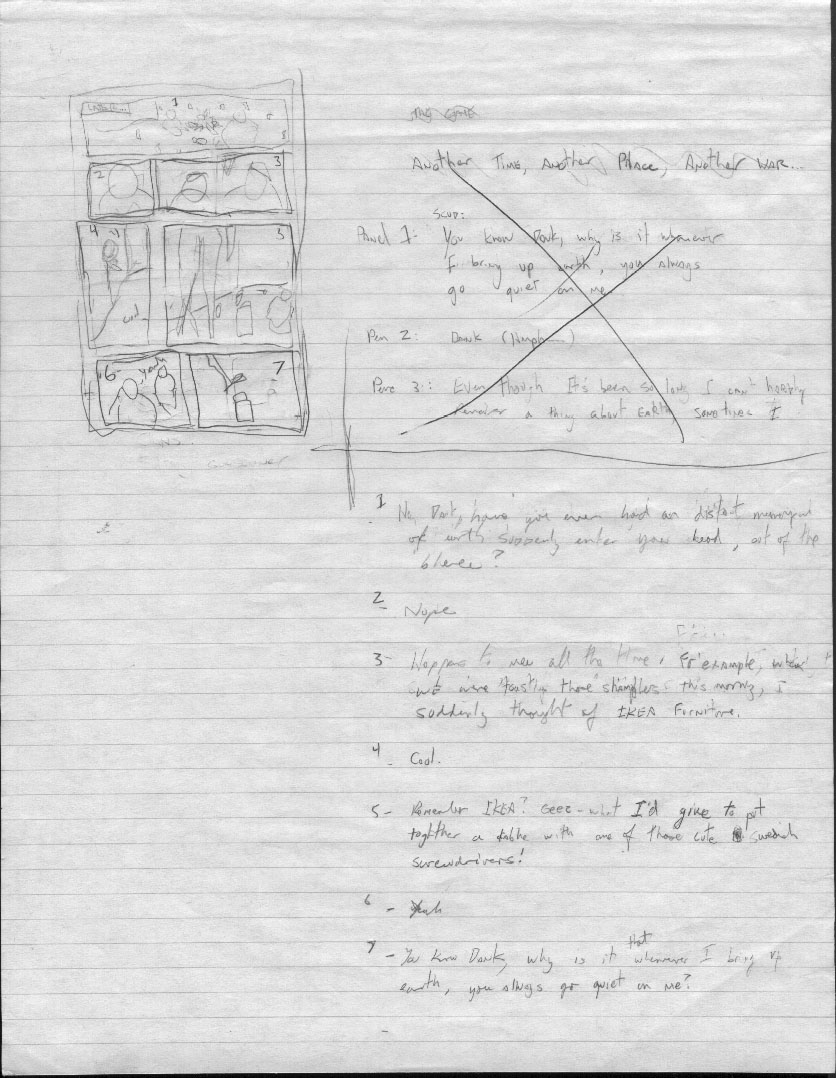 1
2
3
4
5
cool
6
yeah
7
Another Time, Another Place, Another War...
Scud:
Panel 1- You know Dank, why is it whenever
I bring up earth, you always
go quiet on me
Pan 2: Dank
3: Even though It's been so long I can't
a thing about Earth, sometimes I
1 Dank, have you ever had an distant
of earth suddenly enter your head, out of the
?
2 - Nope
3- Happens to me all the time. For example, when
we were those this morning, I
suddenly thought of IKEA Furniture.
4 - Cool.
5- Remember IKEA? Geez - what I'd give to put
together a table with one of those cute Swedish
screwdrivers!
6 - Yeah
7 - You know Dank, why is it that whenever I bring up
earth, you always go quiet on me?